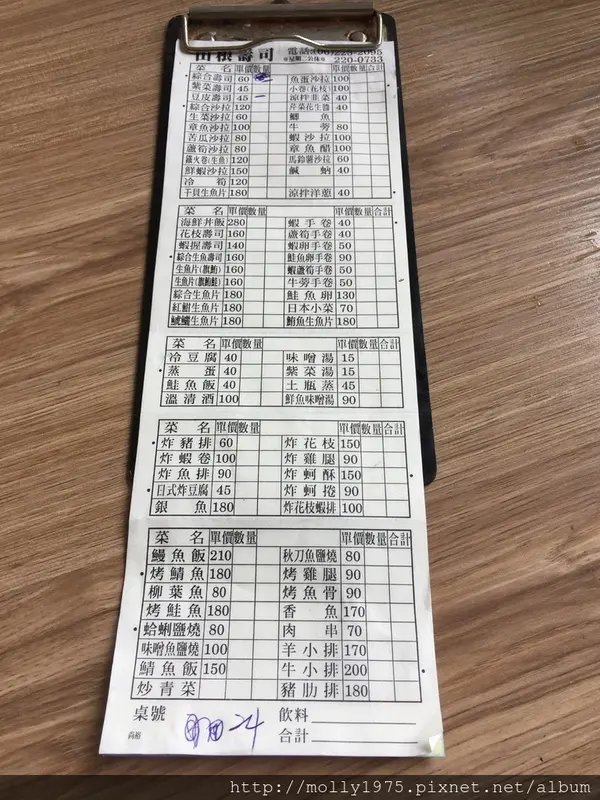 壽司 電話:(06)226-2095
※星期二公休※ 220-0733
菜名 單價 數量 單價 數量 合計
綜合壽司 60 魚蛋沙拉 100
紫菜壽司 45 小卷(花枝) 100
豆皮壽司 45 一 涼拌韭菜 40
綜合沙拉 120 芹菜花生醬 40
生菜沙拉 60 鯽魚
章魚沙拉 100 牛蒡 80
苦瓜沙拉 80 蝦沙拉 100
蘆筍沙拉 80 章魚醋 100
鐵火卷(生魚) 120 馬鈴薯沙拉 60
鮮蝦沙拉 150 鹹蚋 40
冷筍 120
干貝生魚片 180 涼拌洋蔥 40
菜名 單價 數量 單價 數量 合計
海鮮丼飯 280 蝦手卷 40
花枝壽司 160 蘆筍手卷 40
蝦握壽司 140 蝦卵手卷 50
綜合生魚壽司 160 鮭魚卵手卷 90
生魚片(旗鮪) 160 蝦蘆筍手卷 50
生魚片(旗鮪鮭) 160 牛蒡手卷 50
綜合生魚片 180 鮭魚卵 130
紅魽生魚片 180 日本小菜 70
生魚片 180 鮪魚生魚片 180
菜名 單價 數量 單價 數量 合計
冷豆腐 40 味噌湯 15
蒸蛋 40 紫菜湯 15
鮭魚飯 40 土瓶蒸 45
溫清酒 100 鮮魚味噌湯 90
菜名 單價 數量 單價 數量 合計
炸豬排 60 炸花枝 150
炸蝦卷 100 炸雞腿 90
炸魚排 90 炸蚵酥 150
日式炸豆腐 45 炸蚵捲 90
銀魚 180 炸花枝蝦排 100
菜名 單價 數量 單價 數量 合計
鰻魚飯 210 秋刀魚鹽燒 80
烤鯖魚 180 烤雞腿 90
柳葉魚 80 烤魚骨 90
烤鮭魚 180 香魚 170
蛤蜊鹽燒 80 肉串 70
味噌魚鹽燒 100 羊小排 170
鯖魚飯 150 牛小排 200
炒青菜 豬肋排 180
桌號 飲料
尚裕 合計
http://molly1975.pixnet.net/album